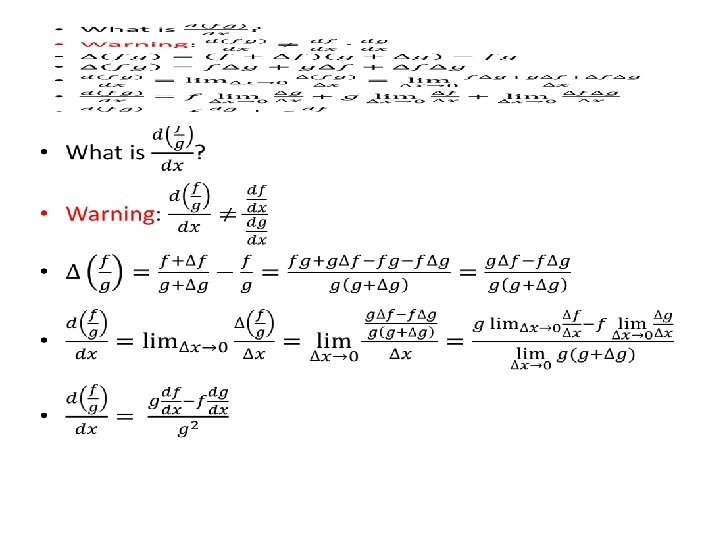 • What is d(fg)/dx?
• Warning: d(fg)/dx ≠ df/dx · dg/dx
• Δ(fg) = (f + Δf)(g + Δg) − fg
• Δ(fg) = fΔg + gΔf + ΔfΔg
• d(fg)/dx = lim_{Δx→0} Δ(fg)/Δx = lim_{Δx→0} (fΔg+gΔf+ΔfΔg)/Δx
• d(fg)/dx = f lim_{Δx→0} Δg/Δx + g lim_{Δx→0} Δf/Δx + lim_{Δx→0} ΔfΔg/Δx
• What is d(f/g)/dx?
• Warning: d(f/g)/dx ≠ (df/dx)/(dg/dx)
• Δ(f/g) = (f+Δf)/(g+Δg) − f/g = (fg+gΔf−fg−fΔg)/(g(g+Δg)) = (gΔf−fΔg)/(g(g+Δg))
• d(f/g)/dx = lim_{Δx→0} Δ(f/g)/Δx = lim_{Δx→0} ((gΔf−fΔg)/(g(g+Δg)))/Δx = (g lim_{Δx→0} Δf/Δx − f lim_{Δx→0} Δg/Δx)/(lim_{Δx→0} g(g+Δg))
• d(f/g)/dx = (g df/dx − f dg/dx)/g²